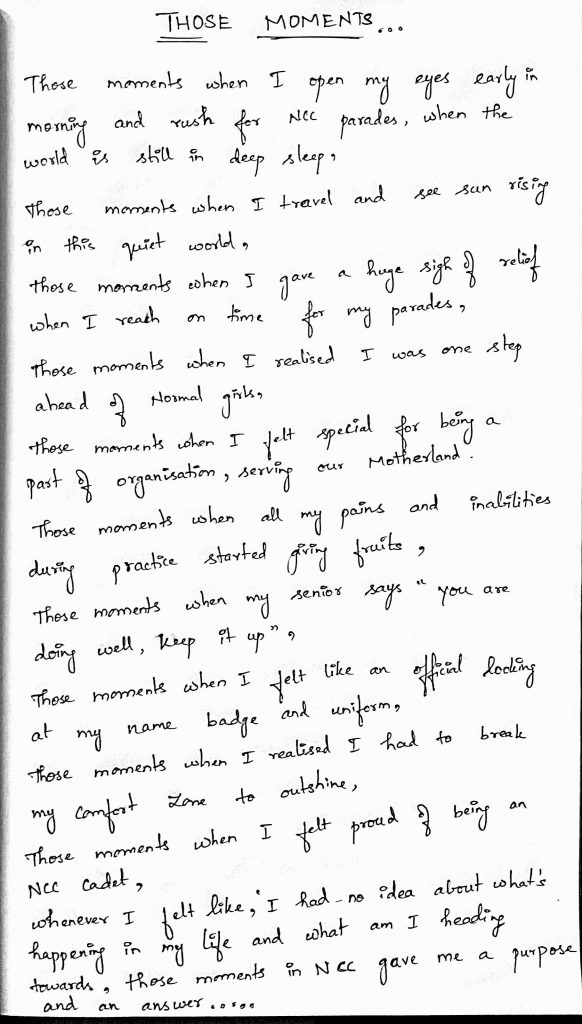 THOSE MOMENTS...
Those moments when I open my eyes early in
morning and rush for NCC parades, when the
world is still in deep sleep,
Those moments when I travel and see sun rising
in this quiet world,
those moments when I gave a huge sigh of relief
when I reach on time for my parades,
Those moments when I realised I was one step
ahead of Normal girls,
those moments when I felt special for being a
part of organisation, serving our Motherland.
Those moments when all my pains and inabilities
during practice started giving fruits,
Those moments when my senior says "you are
doing well, keep it up",
Those moments when I felt like an official looking
at my name badge and uniform,
those moments when I realised I had to break
my comfort zone to outshine,
Those moments when I felt proud of being an
NCC cadet,
whenever I felt like, "I had no idea about what's
happening in my life and what am I heading
towards, those moments in NCC gave me a purpose
and an answer.....